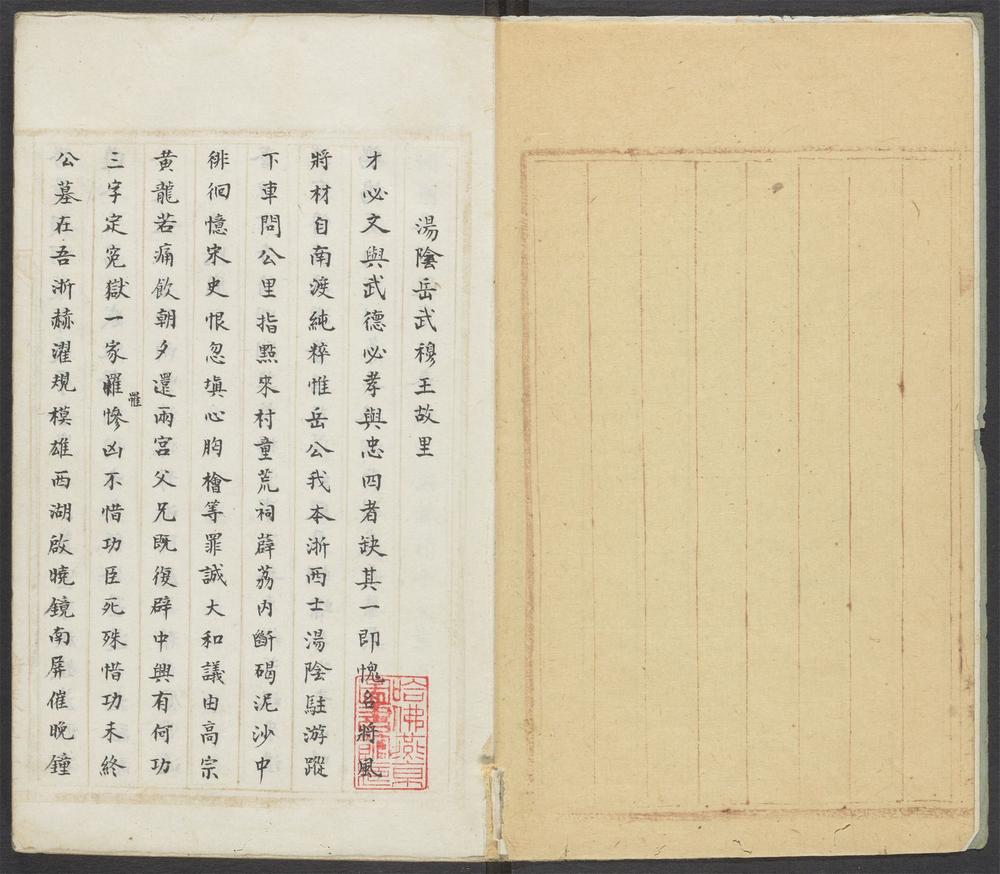 湯陰岳武穆王故里
才必文與武德必孝與忠四者缺其一即愧名將風
將材自南渡純粹惟岳公我本浙西士湯陰駐游蹤
下車問公里指點來村童荒祠薜荔内斷碣泥沙中
徘徊憶宋史恨忽塡心胸檜等罪誠大和議由高宗
黄龍若痛飲朝夕還兩宮父兄既復辟中興有何功
三字定寃獄一家罹慘凶不惜功臣死殊惜功未終
罹
公墓在吾浙赫濯規模雄西湖啟曉鏡南屏催晚鐘